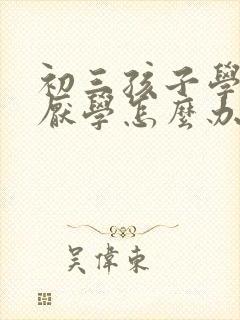 初三孩子學
厭學怎麼办
吴偉東